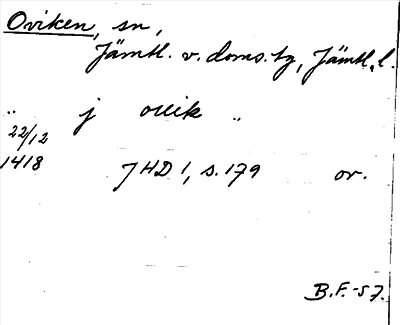 Oviken, sn,
Jämtl. v. doms. tg, Jämtl. l.
„ j ouik „
22/12
1418 JHD 1, s. 179 or.
B.F.-57.